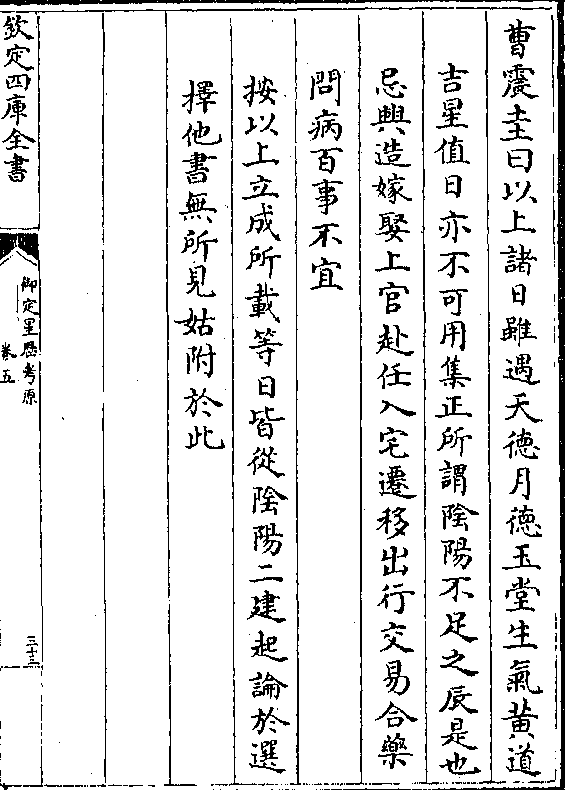 曹震圭曰以上諸日雖遇天徳月徳玉堂生氣黄道
吉星值日亦不可用集正所謂陰陽不足之辰是也
忌興造嫁娶上官赴任入宅遷移出行交易合藥
問病百事不宜
按以上立成所載等日皆從陰陽二建起論於選
擇他書無所見姑附於此
欽定四庫全書
御定星歴考原
卷五
三十三